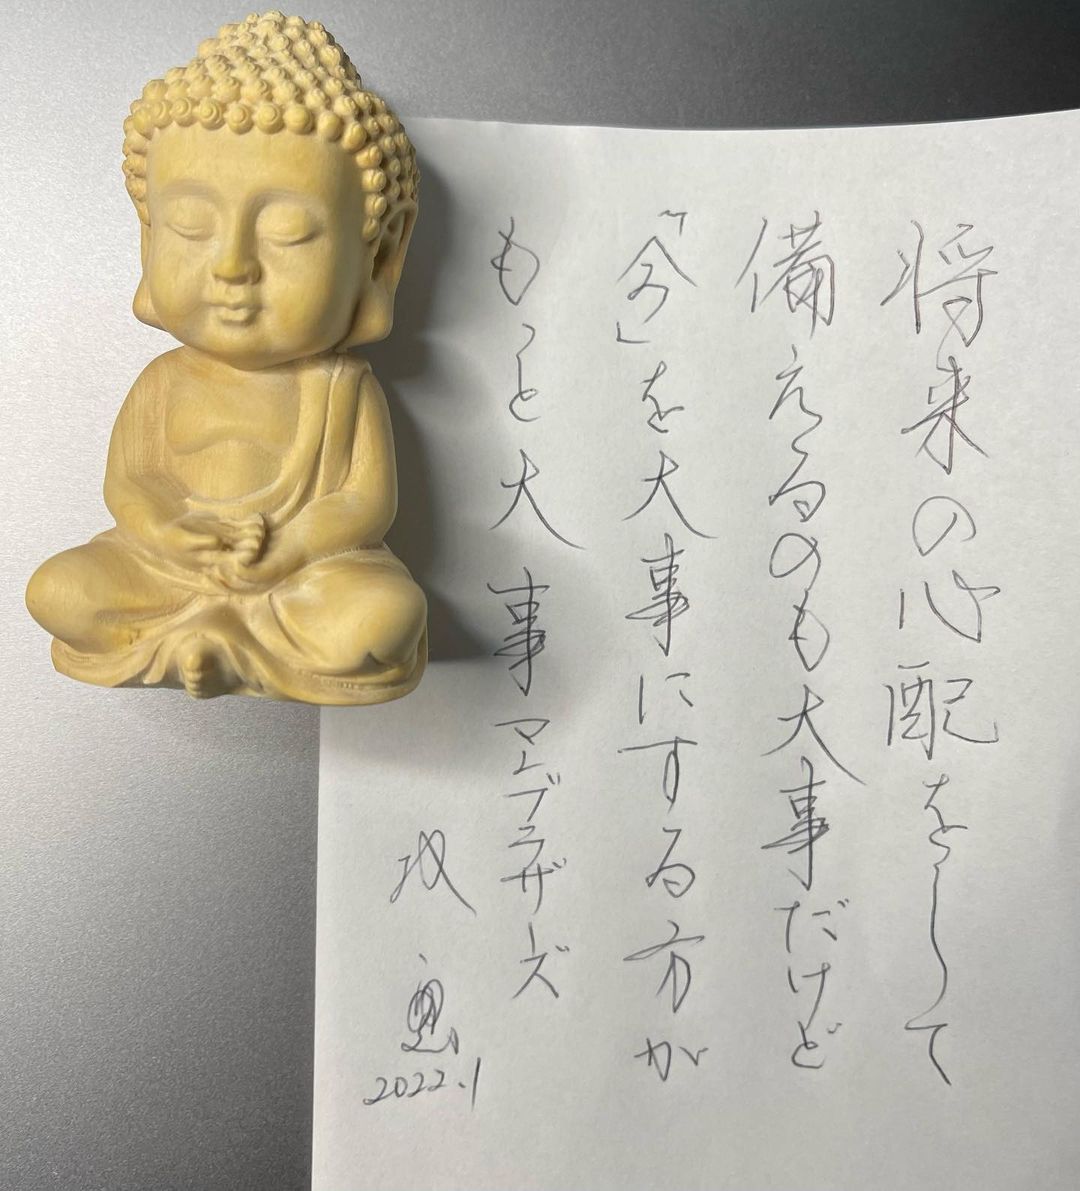 将来の心配をして
備えるのも大事だけど
「今」を大事にする方が
もっと大事マーブラザーズ
2022.1